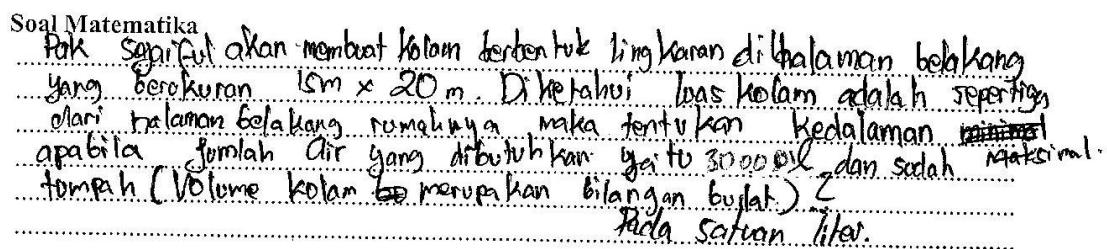 Soal Matematika
Pak Syaiful akan membuat kolam berbentuk lingkaran dihalaman belakang
yang berukuran 15m × 20m. Diketahui luas kolam adalah sepertiga
dari halaman belakang rumahnya maka tentukan kedalaman minimal
apabila jumlah air yang dibutuhkan yaitu 30000 l dan sudah maksimal.
tumpah (Volume kolam merupakan bilangan bulat)?
Pada satuan liter.